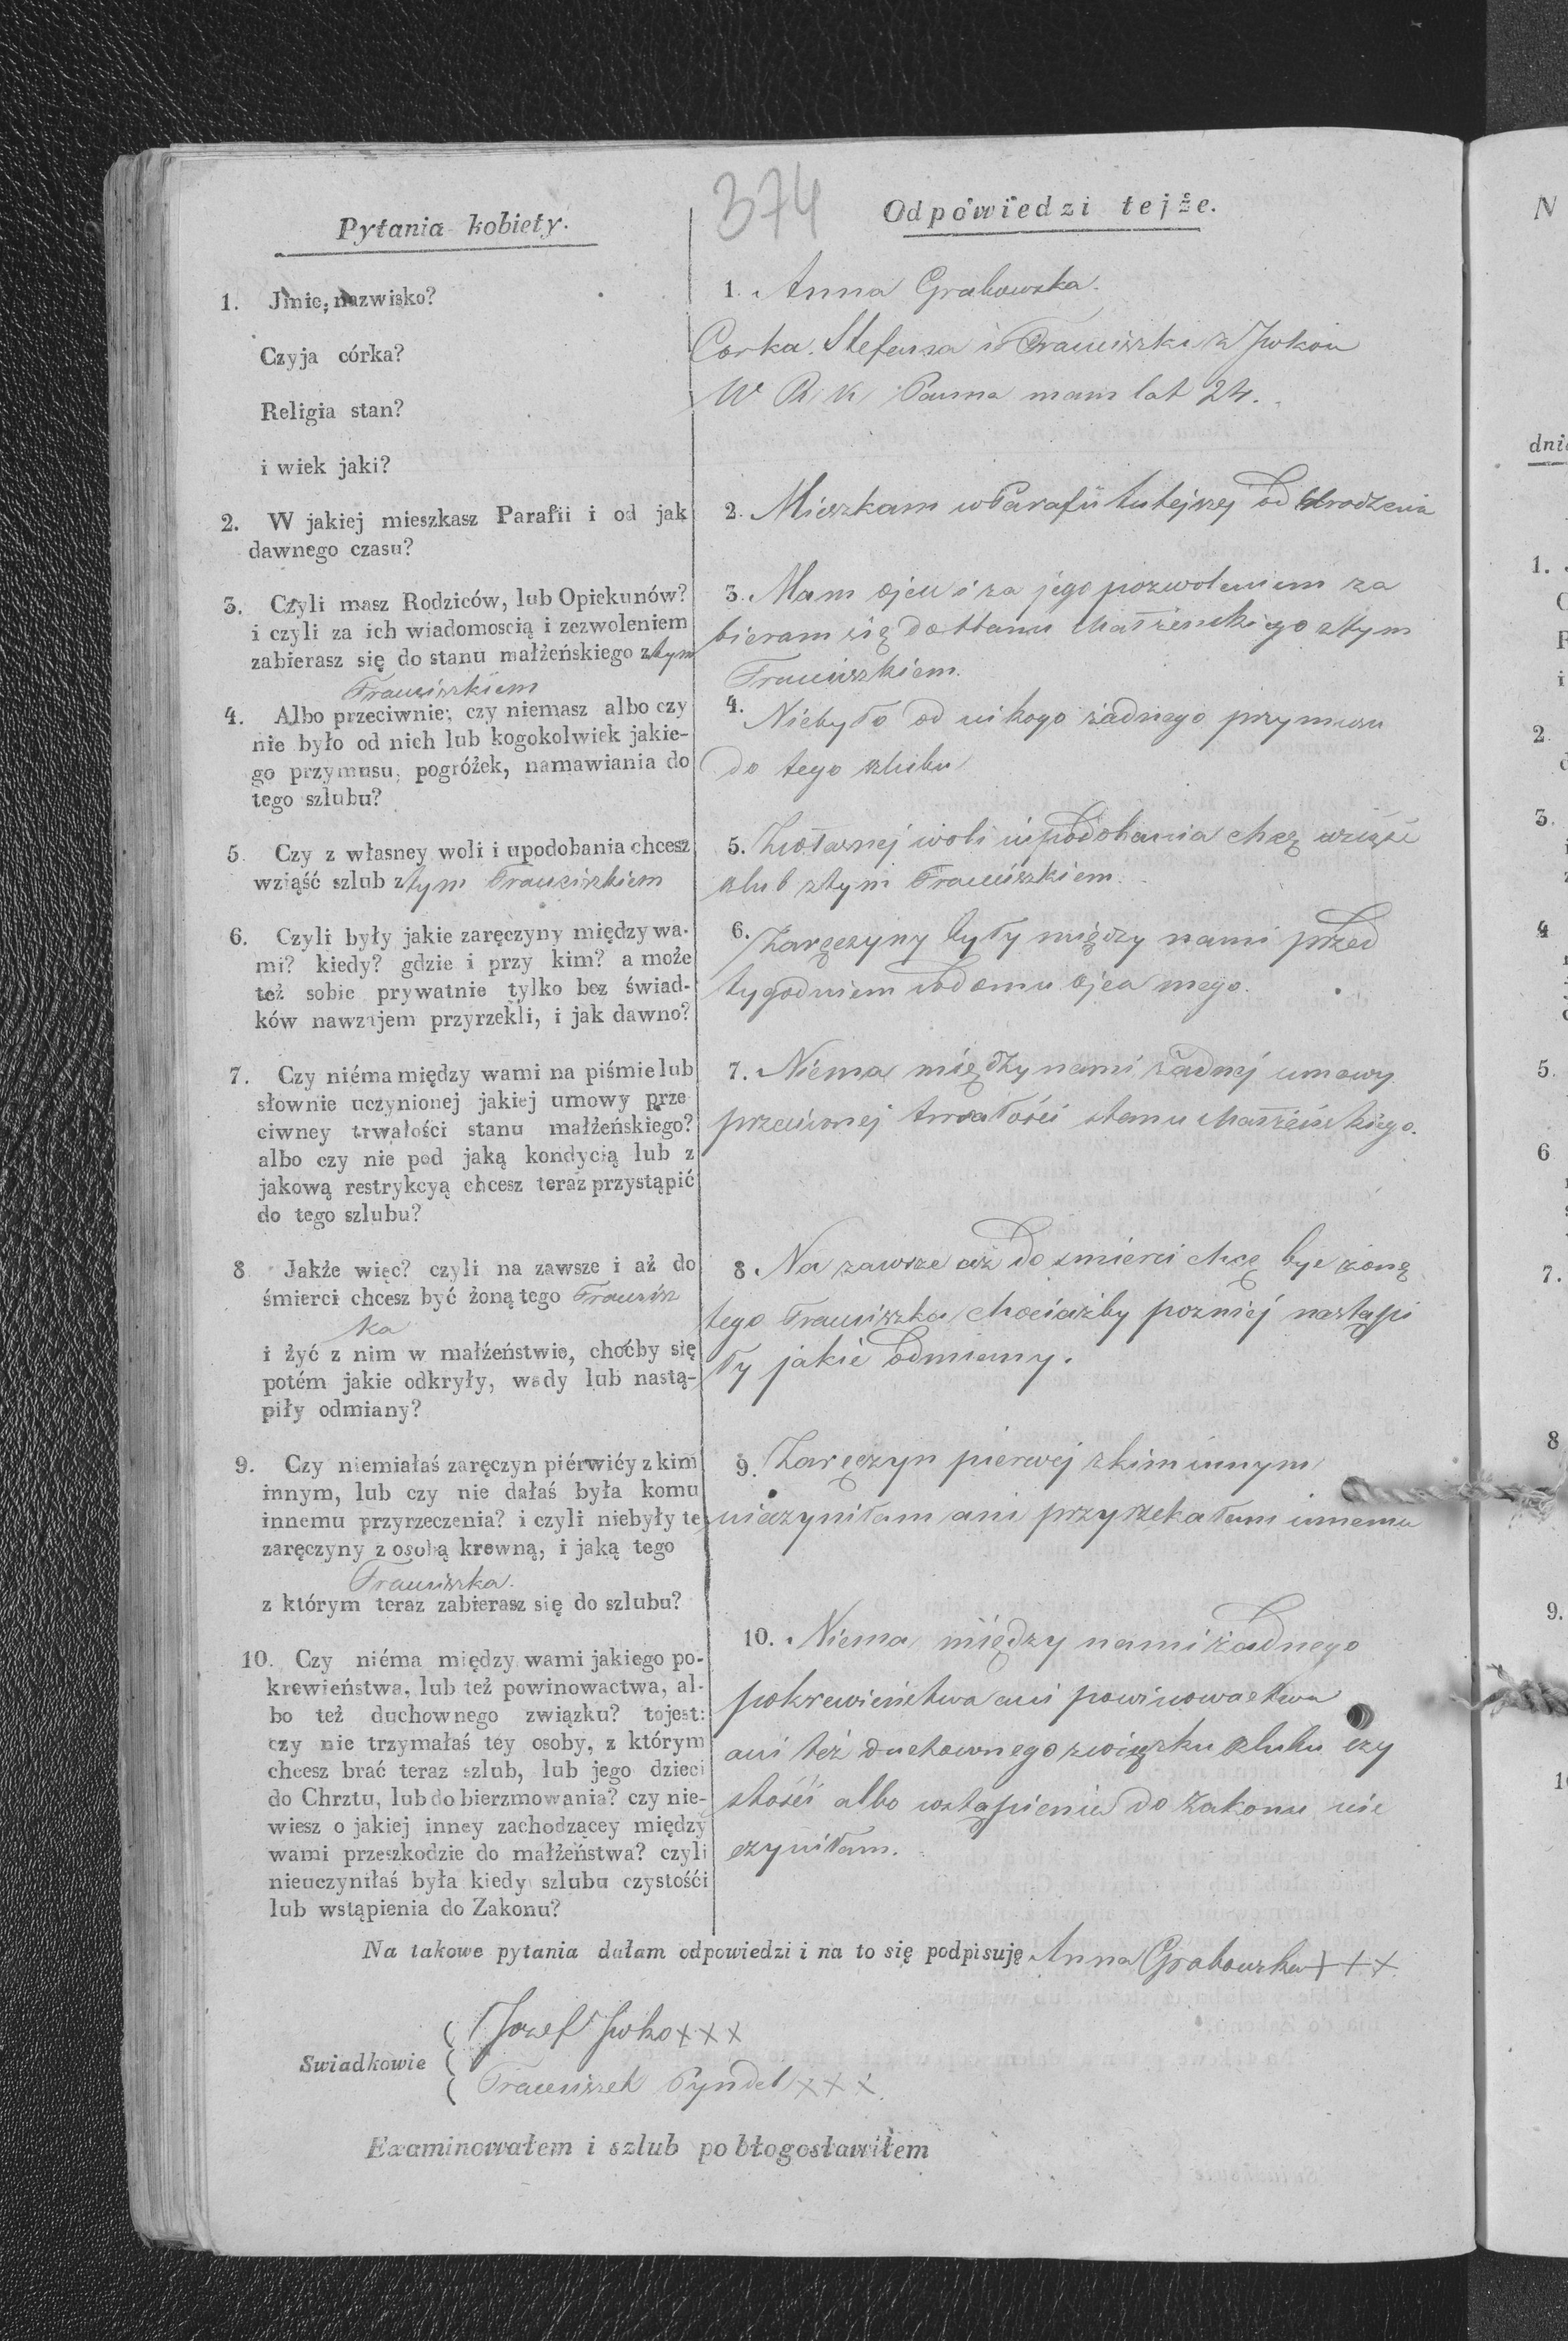 374
Pytania kobiety.
1. Jmie, nazwisko?
Czyja córka?
Religia stan?
i wiek jaki?
2. W jakiej mieszkasz Parafii i od jak
dawnego czasu?
3. Czyli masz Rodziców, lub Opiekunów?
i czyli za ich wiadomoscią i zezwoleniem
zabierasz się do stanu małżeńskiego z tym
Franciszkiem
4. Albo przeciwnie; czy niemasz albo czy
nie było od nich lub kogokolwiek jakie-
go przymusu, pogróżek, namawiania do
tego szlubu?
5 Czy z własney woli i upodobania chcesz
wziąść szlub z tym Franciszkiem
6. Czyli były jakie zaręczyny między wa-
mi? kiedy? gdzie i przy kim? a może
też sobie prywatnie tylko bez świad-
ków nawzajem przyrzekli, i jak dawno?
7. Czy niéma między wami na piśmie lub
słownie uczynionej jakiej umowy prze
ciwney trwałości stanu małżeńskiego?
albo czy nie pod jaką kondycią lub z
jakową restrykcyą chcesz teraz przystąpić
do tego szlubu?
8 Jakże więc? czyli na zawsze i aż do
śmierci chcesz być żoną tego Francisz
ka
i żyć z nim w małżeństwie, choćby się
potém jakie odkryły, wady lub nastą-
piły odmiany?
9. Czy niemiałaś zaręczyn piérwiéy z kim
innym, lub czy nie dałaś była komu
innemu przyrzeczenia? i czyli niebyły te
zaręczyny z osobą krewną, i jaką tego
Franciszka.
z którym teraz zabierasz się do szlubu?
10. Czy niéma między wami jakiego po-
krewieństwa, lub też powinowactwa, al-
bo też duchownego związku? tojest:
czy nie trzymałaś tey osoby, z którym
chcesz brać teraz szlub, lub jego dzieci
do Chrztu, lub do bierzmowania? czy nie-
wiesz o jakiej inney zachodzącey między
wami przeszkodzie do małżeństwa? czyli
nieuczyniłaś była kiedy szlubu czystośći
lub wstąpienia do Zakonu?
Odpowiedzi tejże.
1. Anna Grabowska.
Corka Stefana i Franciszki z Jwkow
W R K Panna mam lat 24.
2. Mieszkam w Parafii tutejszej od Urodzenia
3. Mam ojca i za jego pozwoleniem za
bieram się do stanu Małżeńskiego z tym
Franciszkiem.
4. Niebyło od nikogo żadnego przymusu
do tego szlubu
5. Zwłasnej woli i upodobania chcę wziąść
szlub z tym Franciszkiem.
6. Zaręczyny były między nami przed
tygodniem w domu ojca mego.
7. Niema między nami żadnej umowy
przeciwnej trwałości stanu Małżeńskiego.
8. Na zawsze aż do smierci chcę byc żoną
tego Franciszka chociażby pozniej nastąpi
ły jakie odmiany.
9. Zaręczyn pierwej z kim innym
nieczyniłam ani przyrzekałam innemu
10. Niema między nami żadnego
pokrewieństwa ani powinowactwa
ani też duchownego związku szlubu czy
stości albo wstąpienia do zakonu nie
czyniłam.
Na takowe pytania dałam odpowiedzi i na to się podpisuję Anna Grabowska +++
Swiadkowie
Jozef Jwko xxx
Franciszek Pyndel xxx
Examinowałem i szlub pobłogosławiłem
N
dni
1.
2.
3.
4
5.
6
7.
8
9.